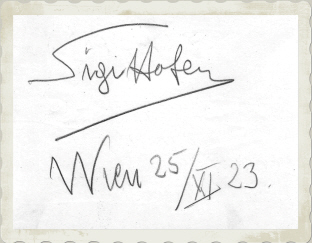 Sigi Hofer
Wien 25/XI 23.